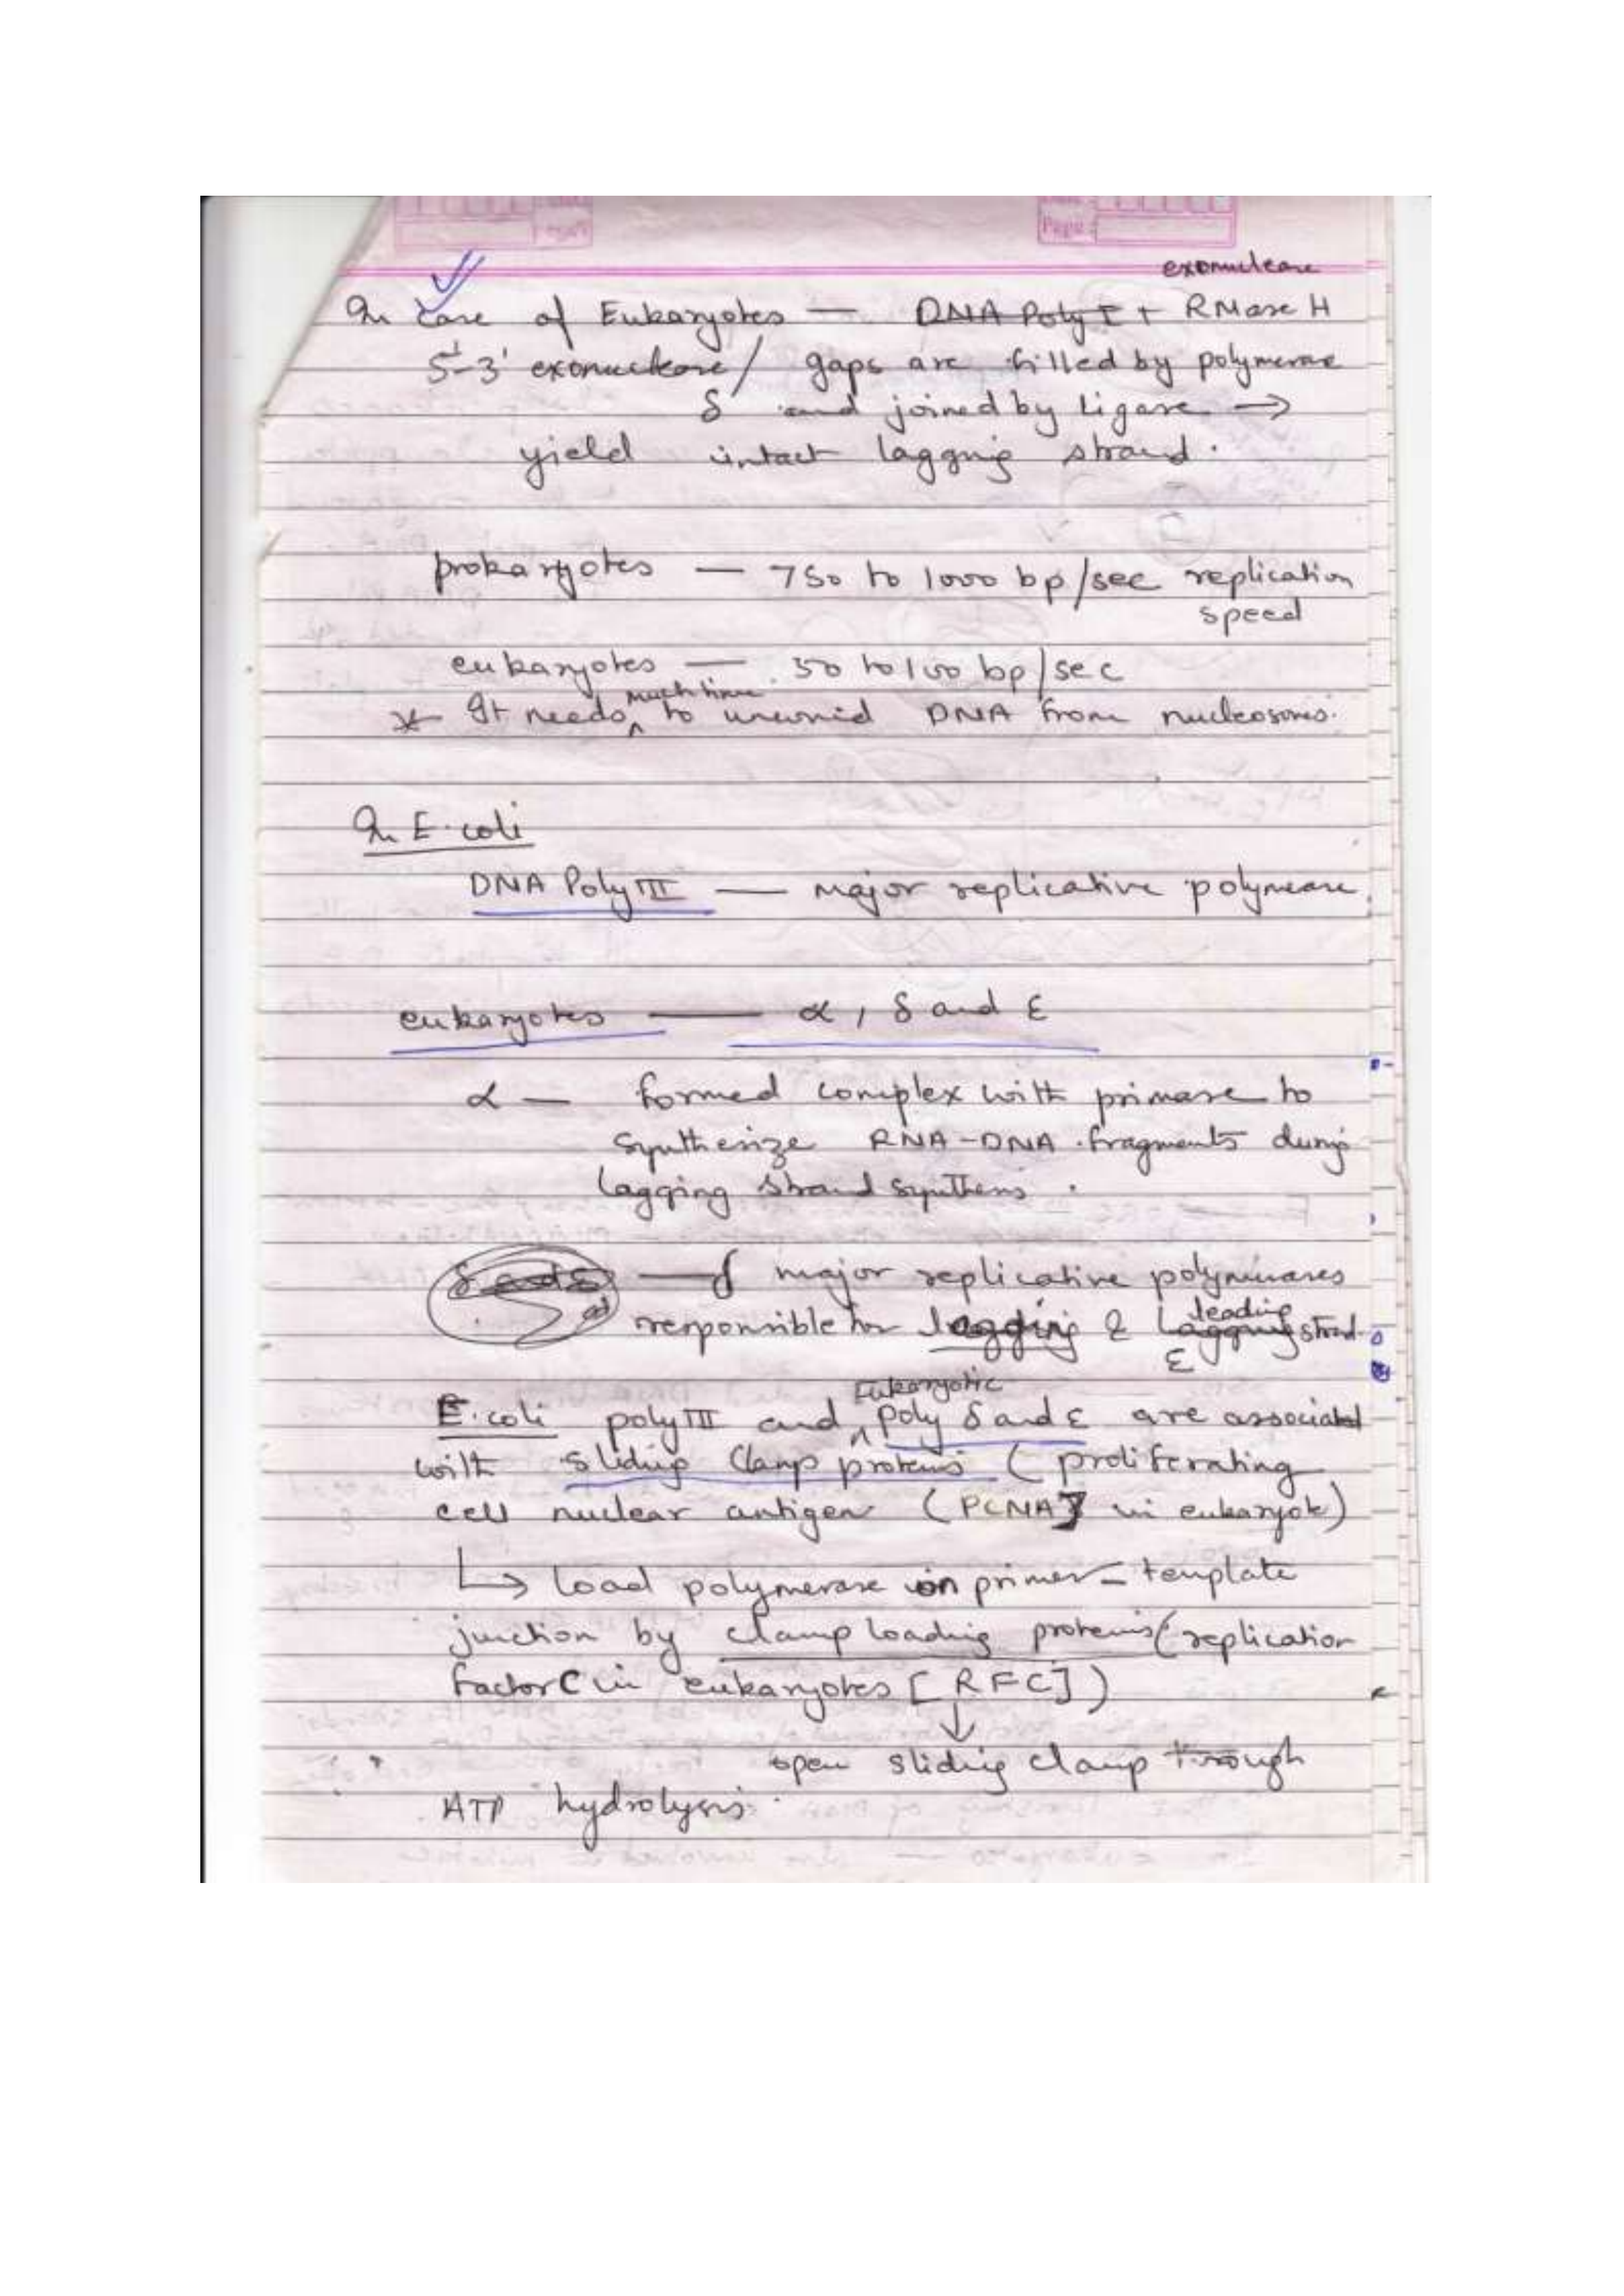 Page :
exonuclease
In case of Eukaryotes — DNA Poly I + RNase H
5'-3' exonuclease/ gaps are filled by polymerase
δ and joined by Ligase →
yield intact lagging strand.
prokaryotes — 750 to 1000 bp/sec replication
speed
eukaryotes — 50 to 100 bp/sec
much time
* It needs ^ to unwind DNA from nucleosomes.
In E.coli
DNA Poly III — major replicative polymerase
eukaryotes — α, δ and ε
α — formed complex with primase to
synthesize RNA-DNA fragments during
lagging strand synthesis.
δ and ε — δ major replicative polymerases
responsible for lagging & leading strand
ε
Eukaryotic
E.coli poly III and ^ poly δ and ε are associated
with sliding clamp proteins (proliferating
cell nuclear antigen (PCNA] in eukaryote)
↳ load polymerase on primer-template
junction by clamp loading proteins (replication
factor C in eukaryotes [RFC])
↓
open sliding clamp through
ATP hydrolysis.